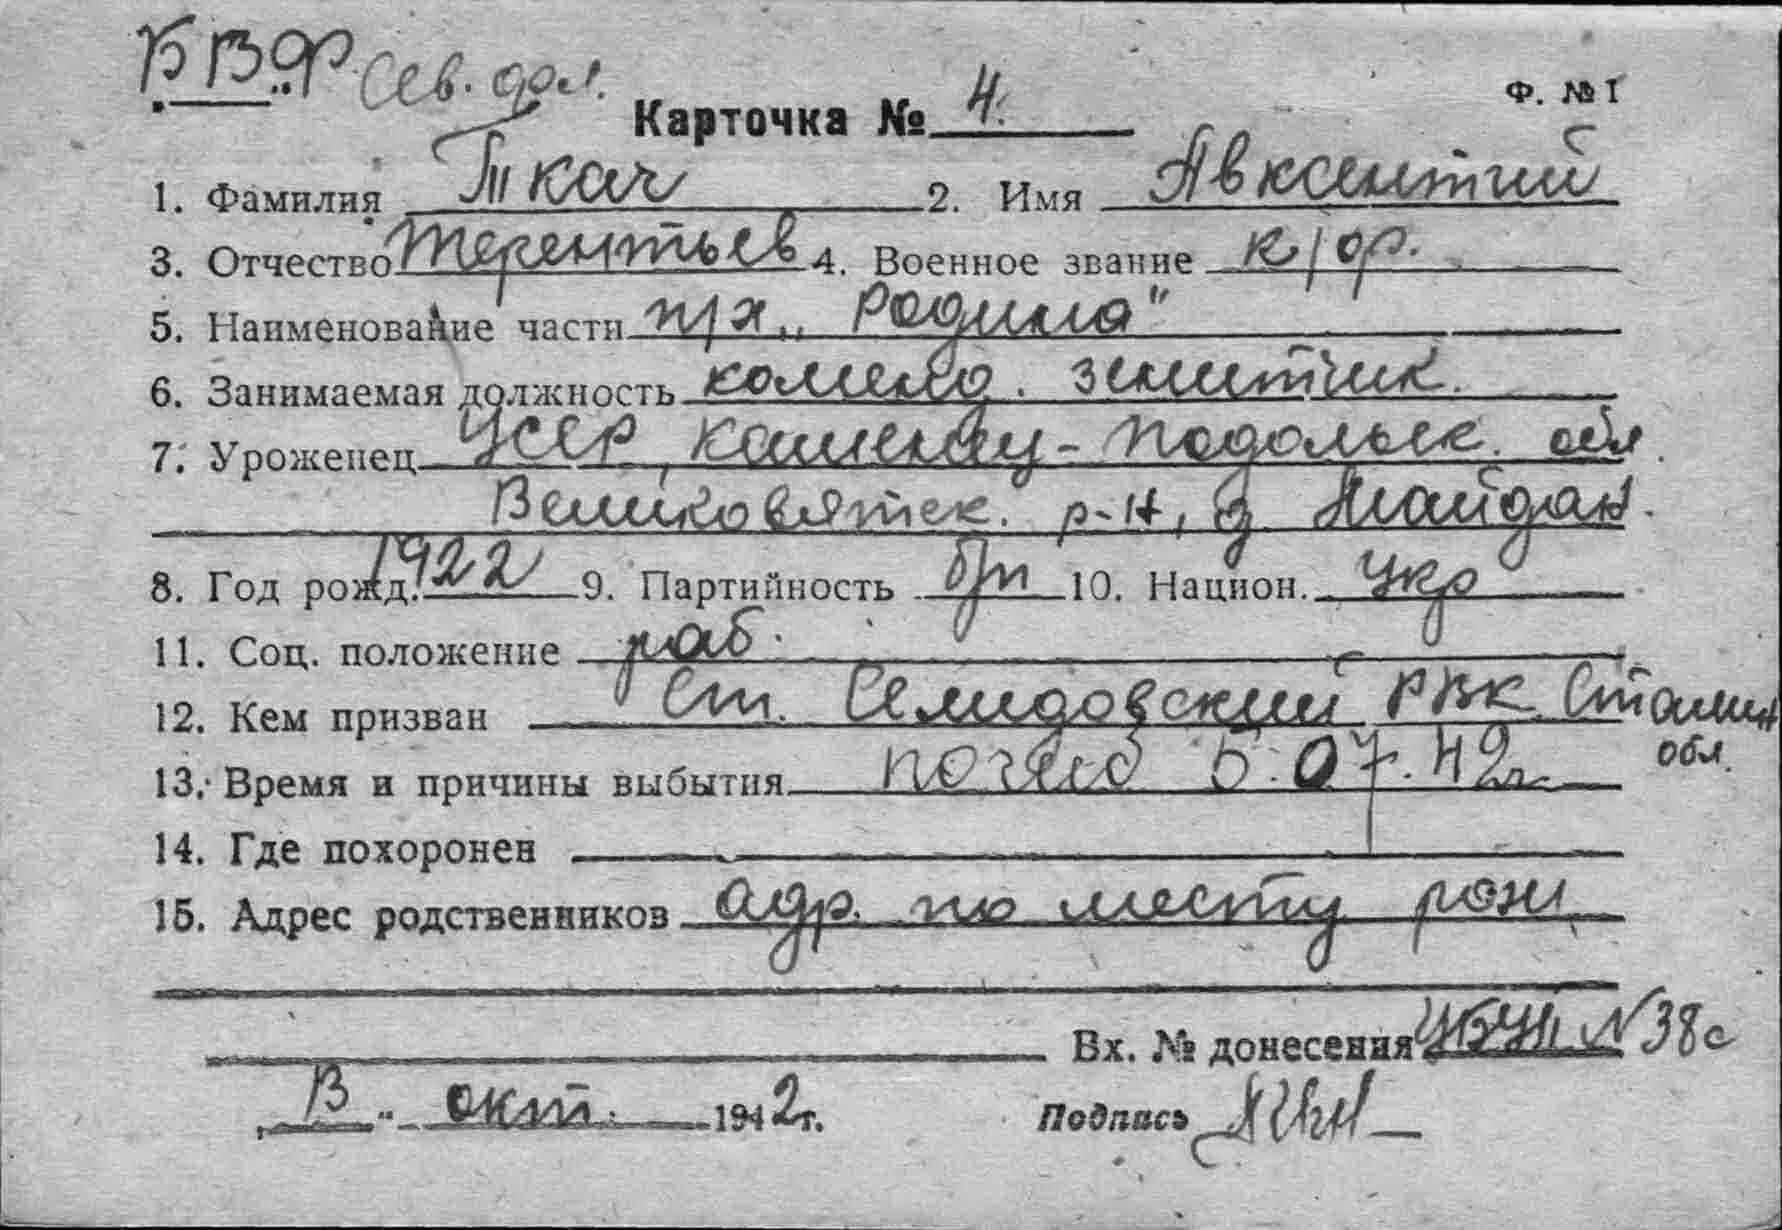 БВФ Сев. фл.
Карточка № 4. Ф. № 1
1. Фамилия Ткач 2. Имя Авксентий
3. Отчество Терентьев 4. Военное звание к/фр.
5. Наименование части п/х „Родина"
6. Занимаемая должность команд. зенитчик.
7. Уроженец УССР, Каменец-Подольск. обл.
Великовятск. р-н, д Майдан.
8. Год рожд. 1922 9. Партийность б/п 10. Национ. Укр
11. Соц. положение раб.
12. Кем призван Ст. Селидовский РВК Сталин
обл.
13. Время и причины выбытия погиб 5.07.42г
14. Где похоронен
15. Адрес родственников адр. по месту рож
Вх. № донесения №38с
окт. 1942г.
Подпись